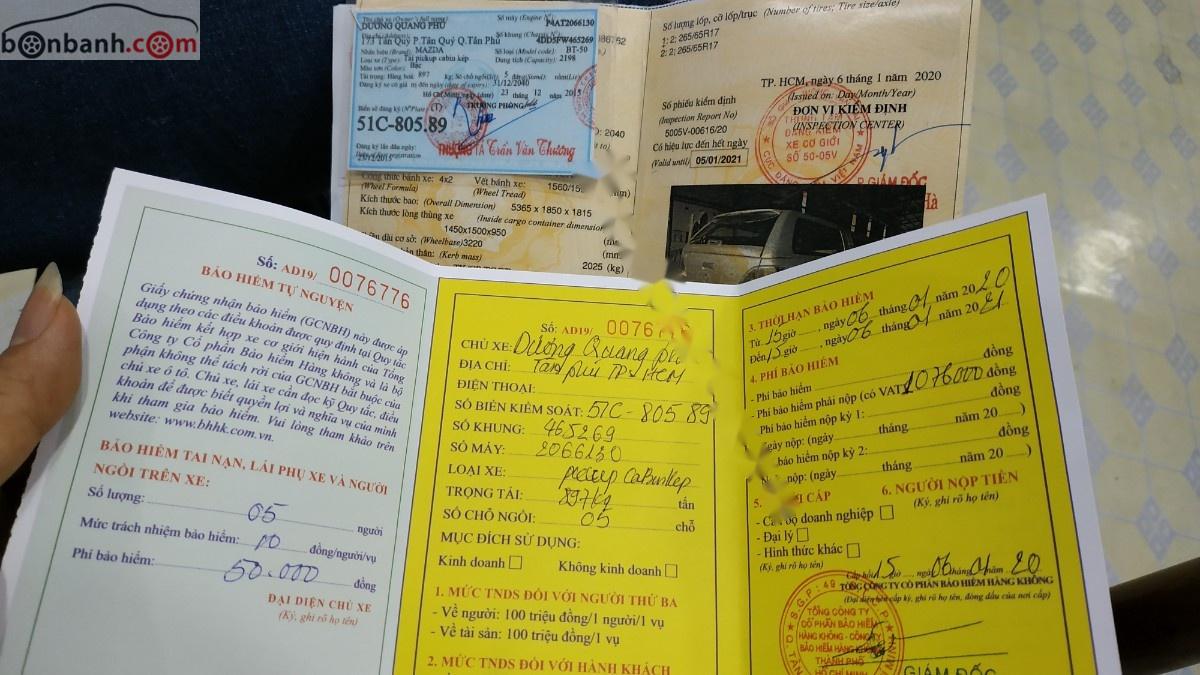 bonbanh.com
Tên chủ xe (Owner's full name)
DƯƠNG QUANG PHÚ
Số máy (Engine N°)
P4AT2066130
173 Tân Quý P.Tân Quý Q.Tân Phú
4DD5FW465269
Nhãn hiệu (Brand): MAZDA
Số loại (Model code): BT-50
Loại xe (Type): Tải pickup cabin kép
Dung tích (Capacity): 2198
Màu sơn (Color): Bạc
Tải trọng: Hàng hoá: 897 kg; Số chỗ ngồi: 5
31/12/2040
Hồ Chí Minh, ngày (date) 23 tháng 12 năm 2015
TRƯỞNG PHÒNG
Biển số đăng ký (N°Plate)
(T)
51C-805.89
THƯỢNG TÁ Trần Văn Thương
Đăng ký lần đầu ngày:
23/12/2015
Công thức bánh xe: 4x2
(Wheel Formula)
Vết bánh xe: 1560/15
(Wheel Tread)
Kích thước bao: (Overall Dimension) 5365 x 1850 x 1815
Kích thước lòng thùng xe
(Inside cargo container dimension)
1450x1500x950
dài cơ sở: (Wheelbase) 3220
bản thân: (Kerb mass)
2025 (kg)
Số lượng lốp, cỡ lốp/trục (Number of tires; Tire size/axle)
1: 2; 265/65R17
2: 2; 265/65R17
TP. HCM, ngày 6 tháng 1 năm 2020
(Issued on: Day/Month/Year)
Số phiếu kiểm định
(Inspection Report No)
5005V-00616/20
ĐƠN VỊ KIỂM ĐỊNH
(INSPECTION CENTER)
Có hiệu lực đến hết ngày
(Valid until) 05/01/2021
TRUNG TÂM
ĐĂNG KIỂM
XE CƠ GIỚI
SỐ 50-05V
P.GIÁM ĐỐC
Hà
Số: AD19/ 0076776
BẢO HIỂM TỰ NGUYỆN
Giấy chứng nhận bảo hiểm (GCNBH) này được áp
dụng theo các điều khoản được quy định tại Quy tắc
Bảo hiểm kết hợp xe cơ giới hiện hành của Tổng
Công ty Cổ phần Bảo hiểm Hàng không và là bộ
phận không thể tách rời của GCNBH bắt buộc của
chủ xe ô tô. Chủ xe, lái xe cần đọc kỹ Quy tắc, điều
khoản để được biết quyền lợi và nghĩa vụ của mình
khi tham gia bảo hiểm. Vui lòng tham khảo trên
website: www.bhhk.com.vn.
BẢO HIỂM TAI NẠN, LÁI PHỤ XE VÀ NGƯỜI
NGỒI TRÊN XE:
Số lượng: 05 người
Mức trách nhiệm bảo hiểm: 10 đồng/người/vụ
Phí bảo hiểm: 50.000 đồng
ĐẠI DIỆN CHỦ XE
(Ký, ghi rõ họ tên)
Số: AD19/ 0076
CHỦ XE: Dương Quang Phú
ĐỊA CHỈ: Tân phú TP HCM
ĐIỆN THOẠI:
SỐ BIỂN KIỂM SOÁT: 51C-805 89
SỐ KHUNG: 465269
SỐ MÁY: 2066130
LOẠI XE: pickup CaBin Kép
TRỌNG TẢI: 897kg tấn
SỐ CHỖ NGỒI: 05 chỗ
MỤC ĐÍCH SỬ DỤNG:
Kinh doanh Không kinh doanh
1. MỨC TNDS ĐỐI VỚI NGƯỜI THỨ BA
- Về người: 100 triệu đồng/1 người/1 vụ
- Về tài sản: 100 triệu đồng/1 vụ
2. MỨC TNDS ĐỐI VỚI HÀNH KHÁCH
3. THỜI HẠN BẢO HIỂM
Từ 15 giờ ....., ngày 06 tháng 01 năm 2020
Đến 15 giờ ....., ngày 06 tháng 01 năm 2021
4. PHÍ BẢO HIỂM
- Phí bảo hiểm đồng
- Phí bảo hiểm phải nộp (có VAT) 1076000 đồng
Phí bảo hiểm nộp kỳ 1: đồng
Ngày nộp: (ngày tháng năm 20 )
bảo hiểm nộp kỳ 2: đồng
nộp: (ngày tháng năm 20 )
5. CẤP
6. NGƯỜI NỘP TIỀN
(Ký, ghi rõ họ tên)
- Cán bộ doanh nghiệp
- Đại lý
- Hình thức khác
(Ký, ghi rõ họ tên)
Cấp hồi 15 giờ ....., ngày 06 tháng 01 năm 20
TỔNG CÔNG TY CỔ PHẦN BẢO HIỂM HÀNG KHÔNG
(Đại diện cấp ký, ghi rõ họ tên, đóng dấu của nơi cấp)
TỔNG CÔNG TY
CỔ PHẦN BẢO HIỂM
HÀNG KHÔNG - CÔNG TY
BẢO HIỂM HÀNG KHÔNG
THÀNH PHỐ
HỒ CHÍ MINH
GIÁM ĐỐC